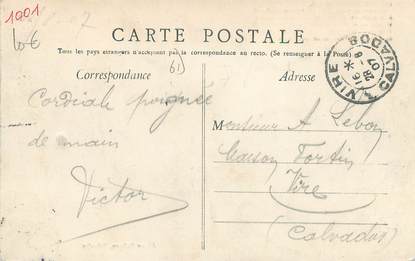 1001
2
10 €
CARTE POSTALE
Tous les pays étrangers n'acceptent pas la correspondance au recto. (Se renseigner à la Poste)
Correspondance
61
Adresse
VIRE
CALVADOS
Cordiale poignée
de main
Victor
Monsieur A Leboy
Maison Fortin
Vire
(Calvados)